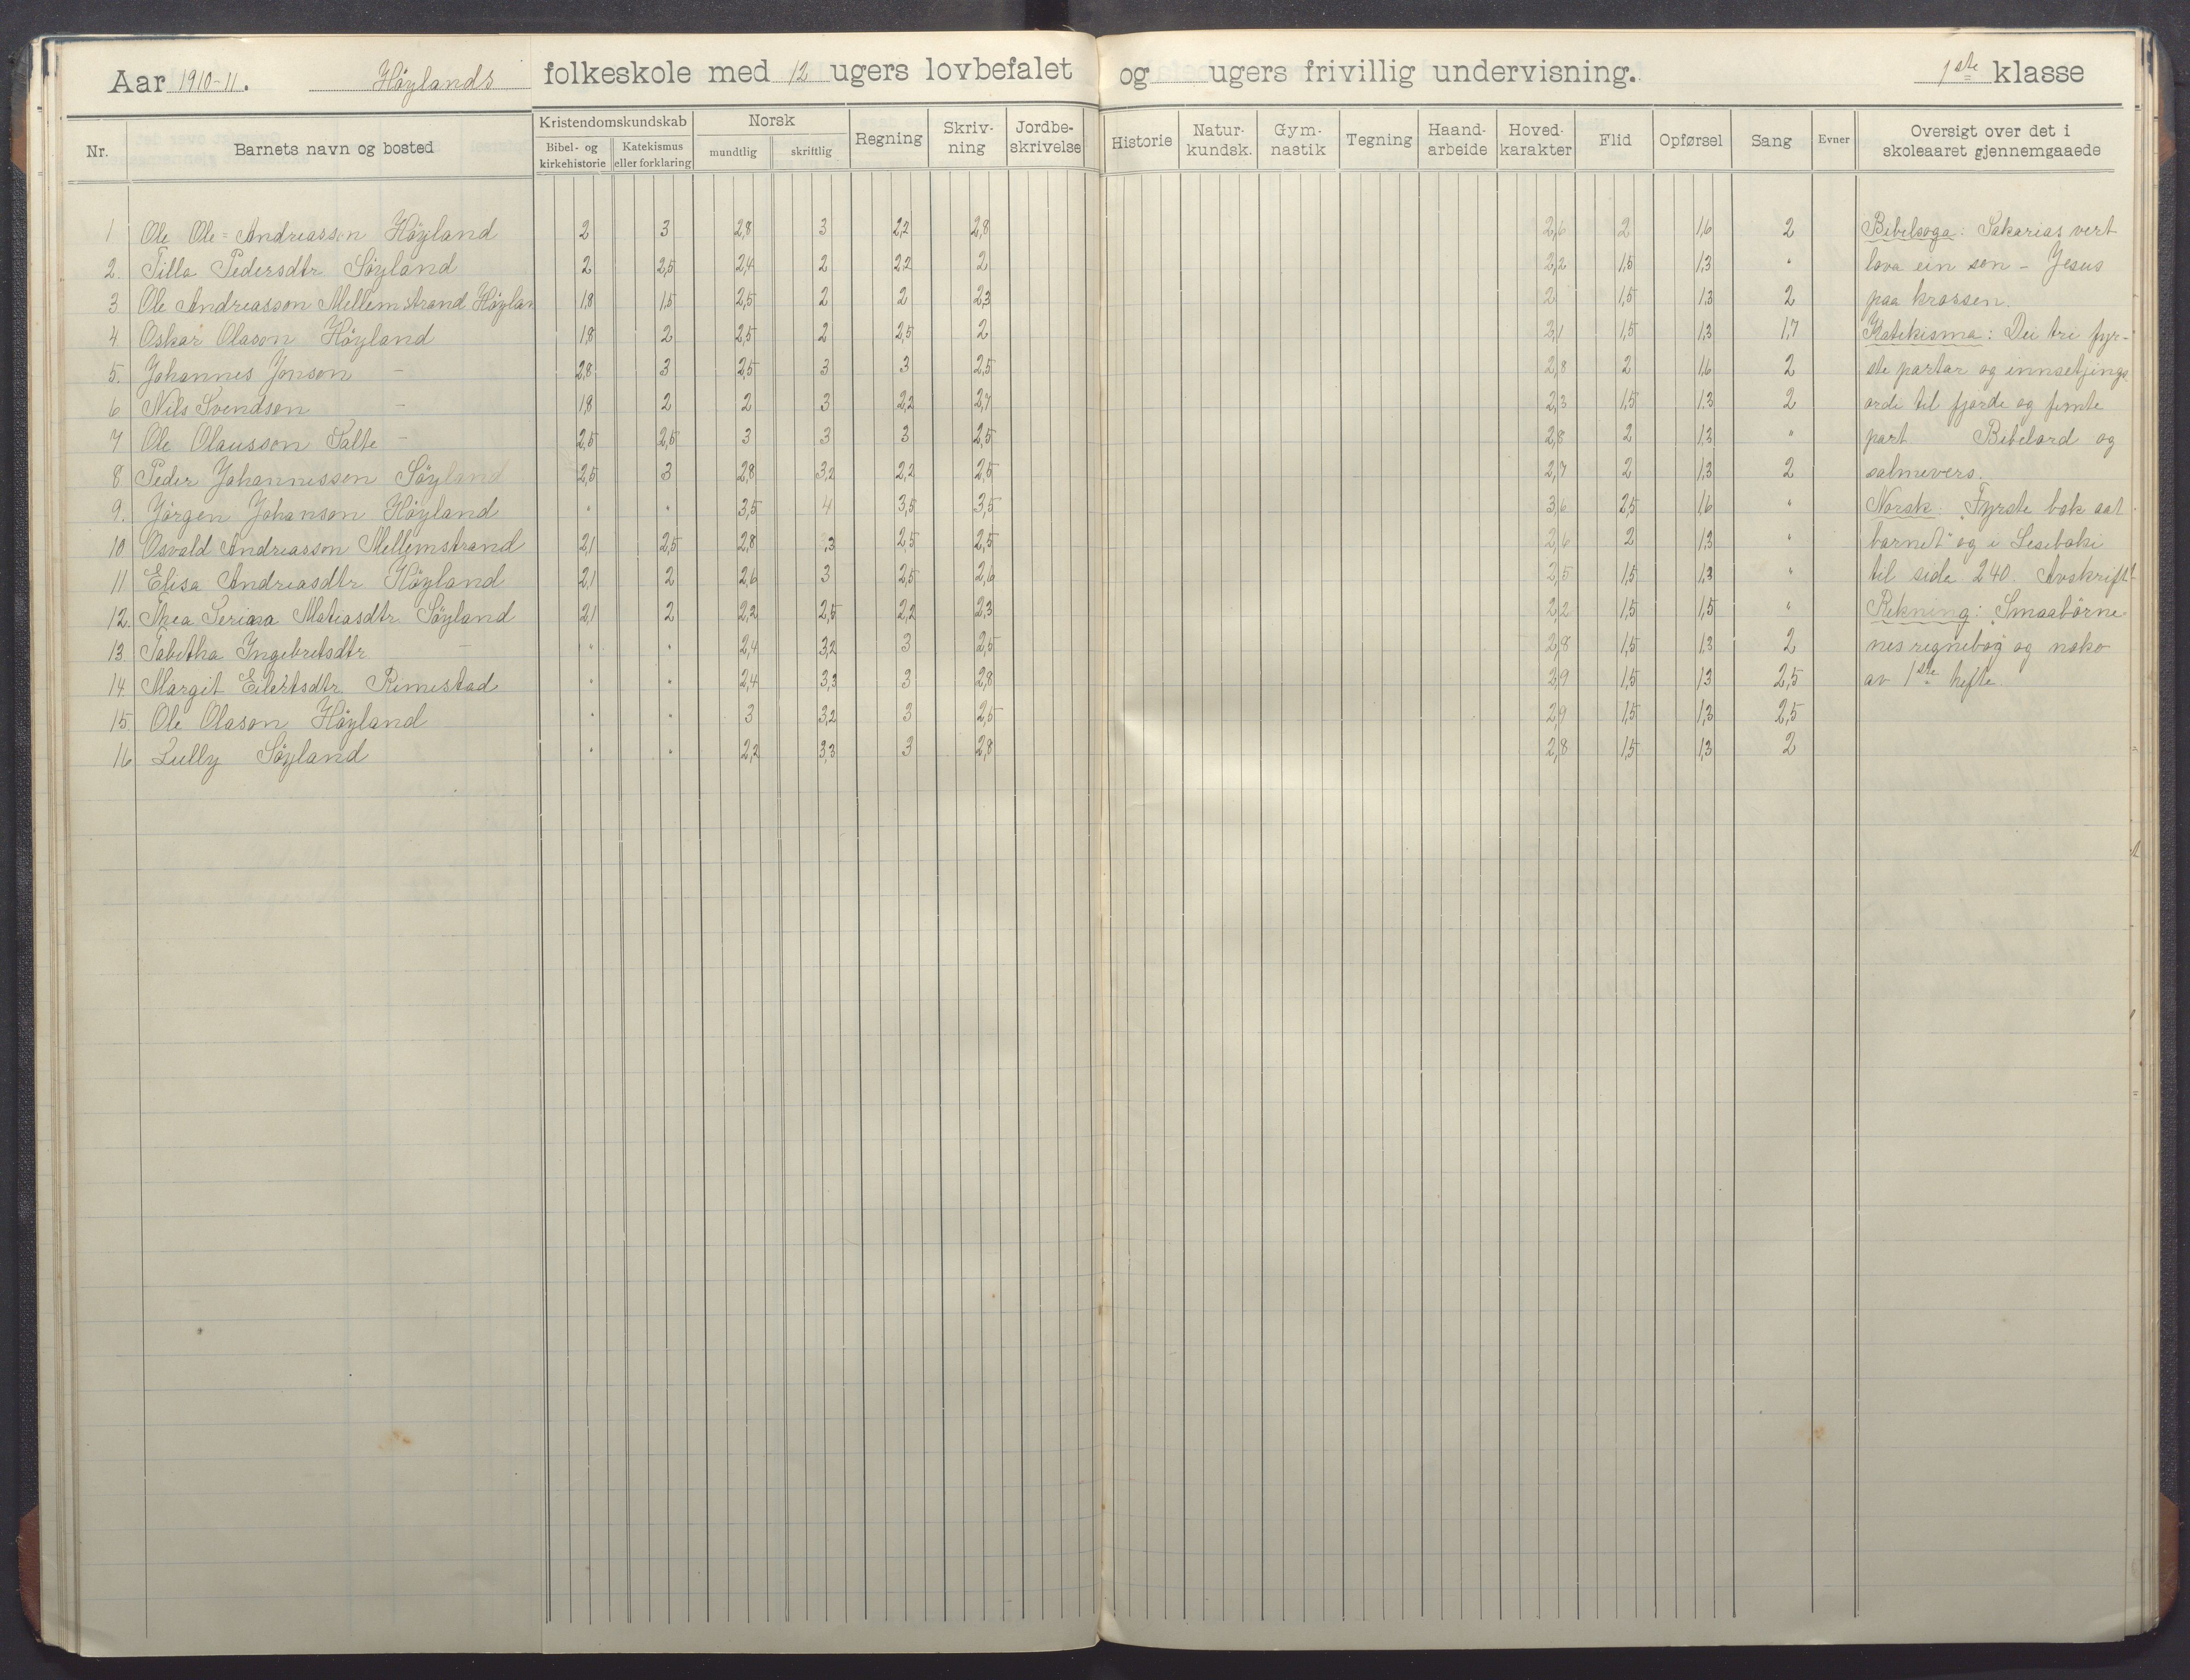 Aar 1910-11. Höylands folkeskole med 12 ugers lovbefalet og ugers frivillig undervisning. 1ste klasse
Nr. Barnets navn og bosted Kristendomskundskab Bibel- og kirkehistorie Katekismus eller forklaring Norsk mundtlig skriftlig Regning Skriv-ning Jordbe-skrivelse Historie Natur-kundsk. Gym-nastik Tegning Haand-arbeide Hoved-karakter Flid Opførsel Sang Evner Oversigt over det i skoleaaret gjennemgaaede
1 Ole Ole=Andreasson Höyland 2 3 2,8 3 2,2 2,8 2,6 2 1,6 2 Bibelsoga: Sakarias vert
2. Tilla Pedersdtr. Söyland 2 2,5 2,4 2 2,2 2 2,2 1,5 1,3 " lova ein son - Jesus
3 Ole Andreasson Mellemstrand Höylan 1,8 1,5 2,5 2 2 2,3 2 1,5 1,3 2 paa krossen.
4 Oskar Olason Höyland 1,8 2 2,5 2 2,5 2 2,1 1,5 1,3 1,7 Katekisma: Dei tri fyr-
5. Johannes Jonson - 2,8 3 2,5 3 3 2,5 2,8 2 1,6 2 ste partar og innsetjings
6 Nils Svendsen - 1,8 2 2 3 2,2 2,7 2,3 1,5 1.3 2 orde til fjorde og femte
7 Ole Olausson Salte - 2,5 2,5 3 3 3 2,5 2,8 2 1,3 " part Bibelord og
8 Peder Johannessen Söyland 2,5 3 2,8 3,2 2,2 2,5 2,7 2 1,3 2 salmevers.
9. Jörgen Johanson Höyland " " 3,5 4 3,5 3,5 3,6 2,5 1,6 " Norsk: "Fyrste bok aat
10 Osvald Andreasson Mellemstrand 2,1 2,5 2,8 3 2,5 2,5 2,6 2 1,3 " barnet" og i Leseboki
11 Elisa Andreasdtr Höyland 2,1 2 2,6 3 2,5 2,6 2,5 1,5 1,3 " til side 240. Avskrift
12. Thea Serina Matiasdtr. Söyland 2,1 2 2,2 2,5 2,2 2,3 2,2 1,5 1,5 " Rekning: Smaabörne
13. Tabetha Ingebretsdtr - " " 2,4 3,2 3 2,5 2,8 1,5 1,3 2 nes regnebog og noko
14. Margit Eilertsdtr. Rimestad " " 2,4 3,3 3 2,8 2,9 1,5 1,3 2,5 av 1ste hefte.
15. Ole Olason Höyland " " 3 3,2 3 2,5 2,9 1,5 1,3 2,5
16 Lully Söyland " " 2,2 3,3 3 2,8 2,8 1,5 1,3 2